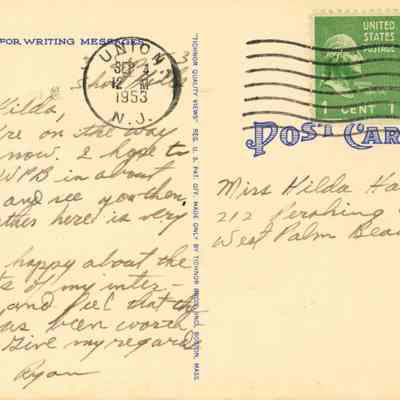 FOR WRITING MESSAGES
UNION
SEP 3
12 M
1953
N.J.
UNITED
STATES
POSTAGE
1 CENT 1
POST CAR
"TICHNOR QUALITY VIEWS" REG. U. S. PAT. OFF. MADE ONLY BY TICHNOR BROS., INC., BOSTON, MASS.
Hilda,
're on the way
now. I hope to
WPB in about
and see you then,
ther here is very
happy about the
ts of my inter-
, and feel that the
as been worth
Give my regard
Ryan
Miss Hilda Ha
212 Pershing
West Palm Bea